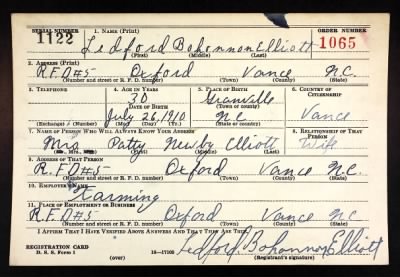 SERIAL NUMBER 1. NAME (Print) ORDER NUMBER
1122 Ledford Bohannon Elliott 1065
(First) (Middle) (Last)
2. ADDRESS (Print)
R.F.D #5 Oxford Vance N.C.
(Number and street or R. F. D. number) (Town) (County) (State)
3. TELEPHONE 4. AGE IN YEARS 5. PLACE OF BIRTH 6. COUNTRY OF CITIZENSHIP
30 Granville
DATE OF BIRTH (Town or county)
July 26, 1910 N.C. Vance
(Exchange) (Number) (Mo.) (Day) (Yr.) (State or country)
7. NAME OF PERSON WHO WILL ALWAYS KNOW YOUR ADDRESS 8. RELATIONSHIP OF THAT PERSON
Mrs Patty Newby Elliott Wife
(Mr., Mrs., Miss) (First) (Middle) (Last)
9. ADDRESS OF THAT PERSON
R.F.D #5 Oxford Vance N.C.
(Number and street or R. F. D. number) (Town) (County) (State)
10. EMPLOYER'S NAME
Farming
11. PLACE OF EMPLOYMENT OR BUSINESS
R.F.D #5 Oxford Vance N.C.
(Number and street or R. F. D. number) (Town) (County) (State)
I AFFIRM THAT I HAVE VERIFIED ABOVE ANSWERS AND THAT THEY ARE TRUE.
REGISTRATION CARD Ledford Bohannon Elliott
D. S. S. Form 1 (over) 16—17105 (Registrant's signature)